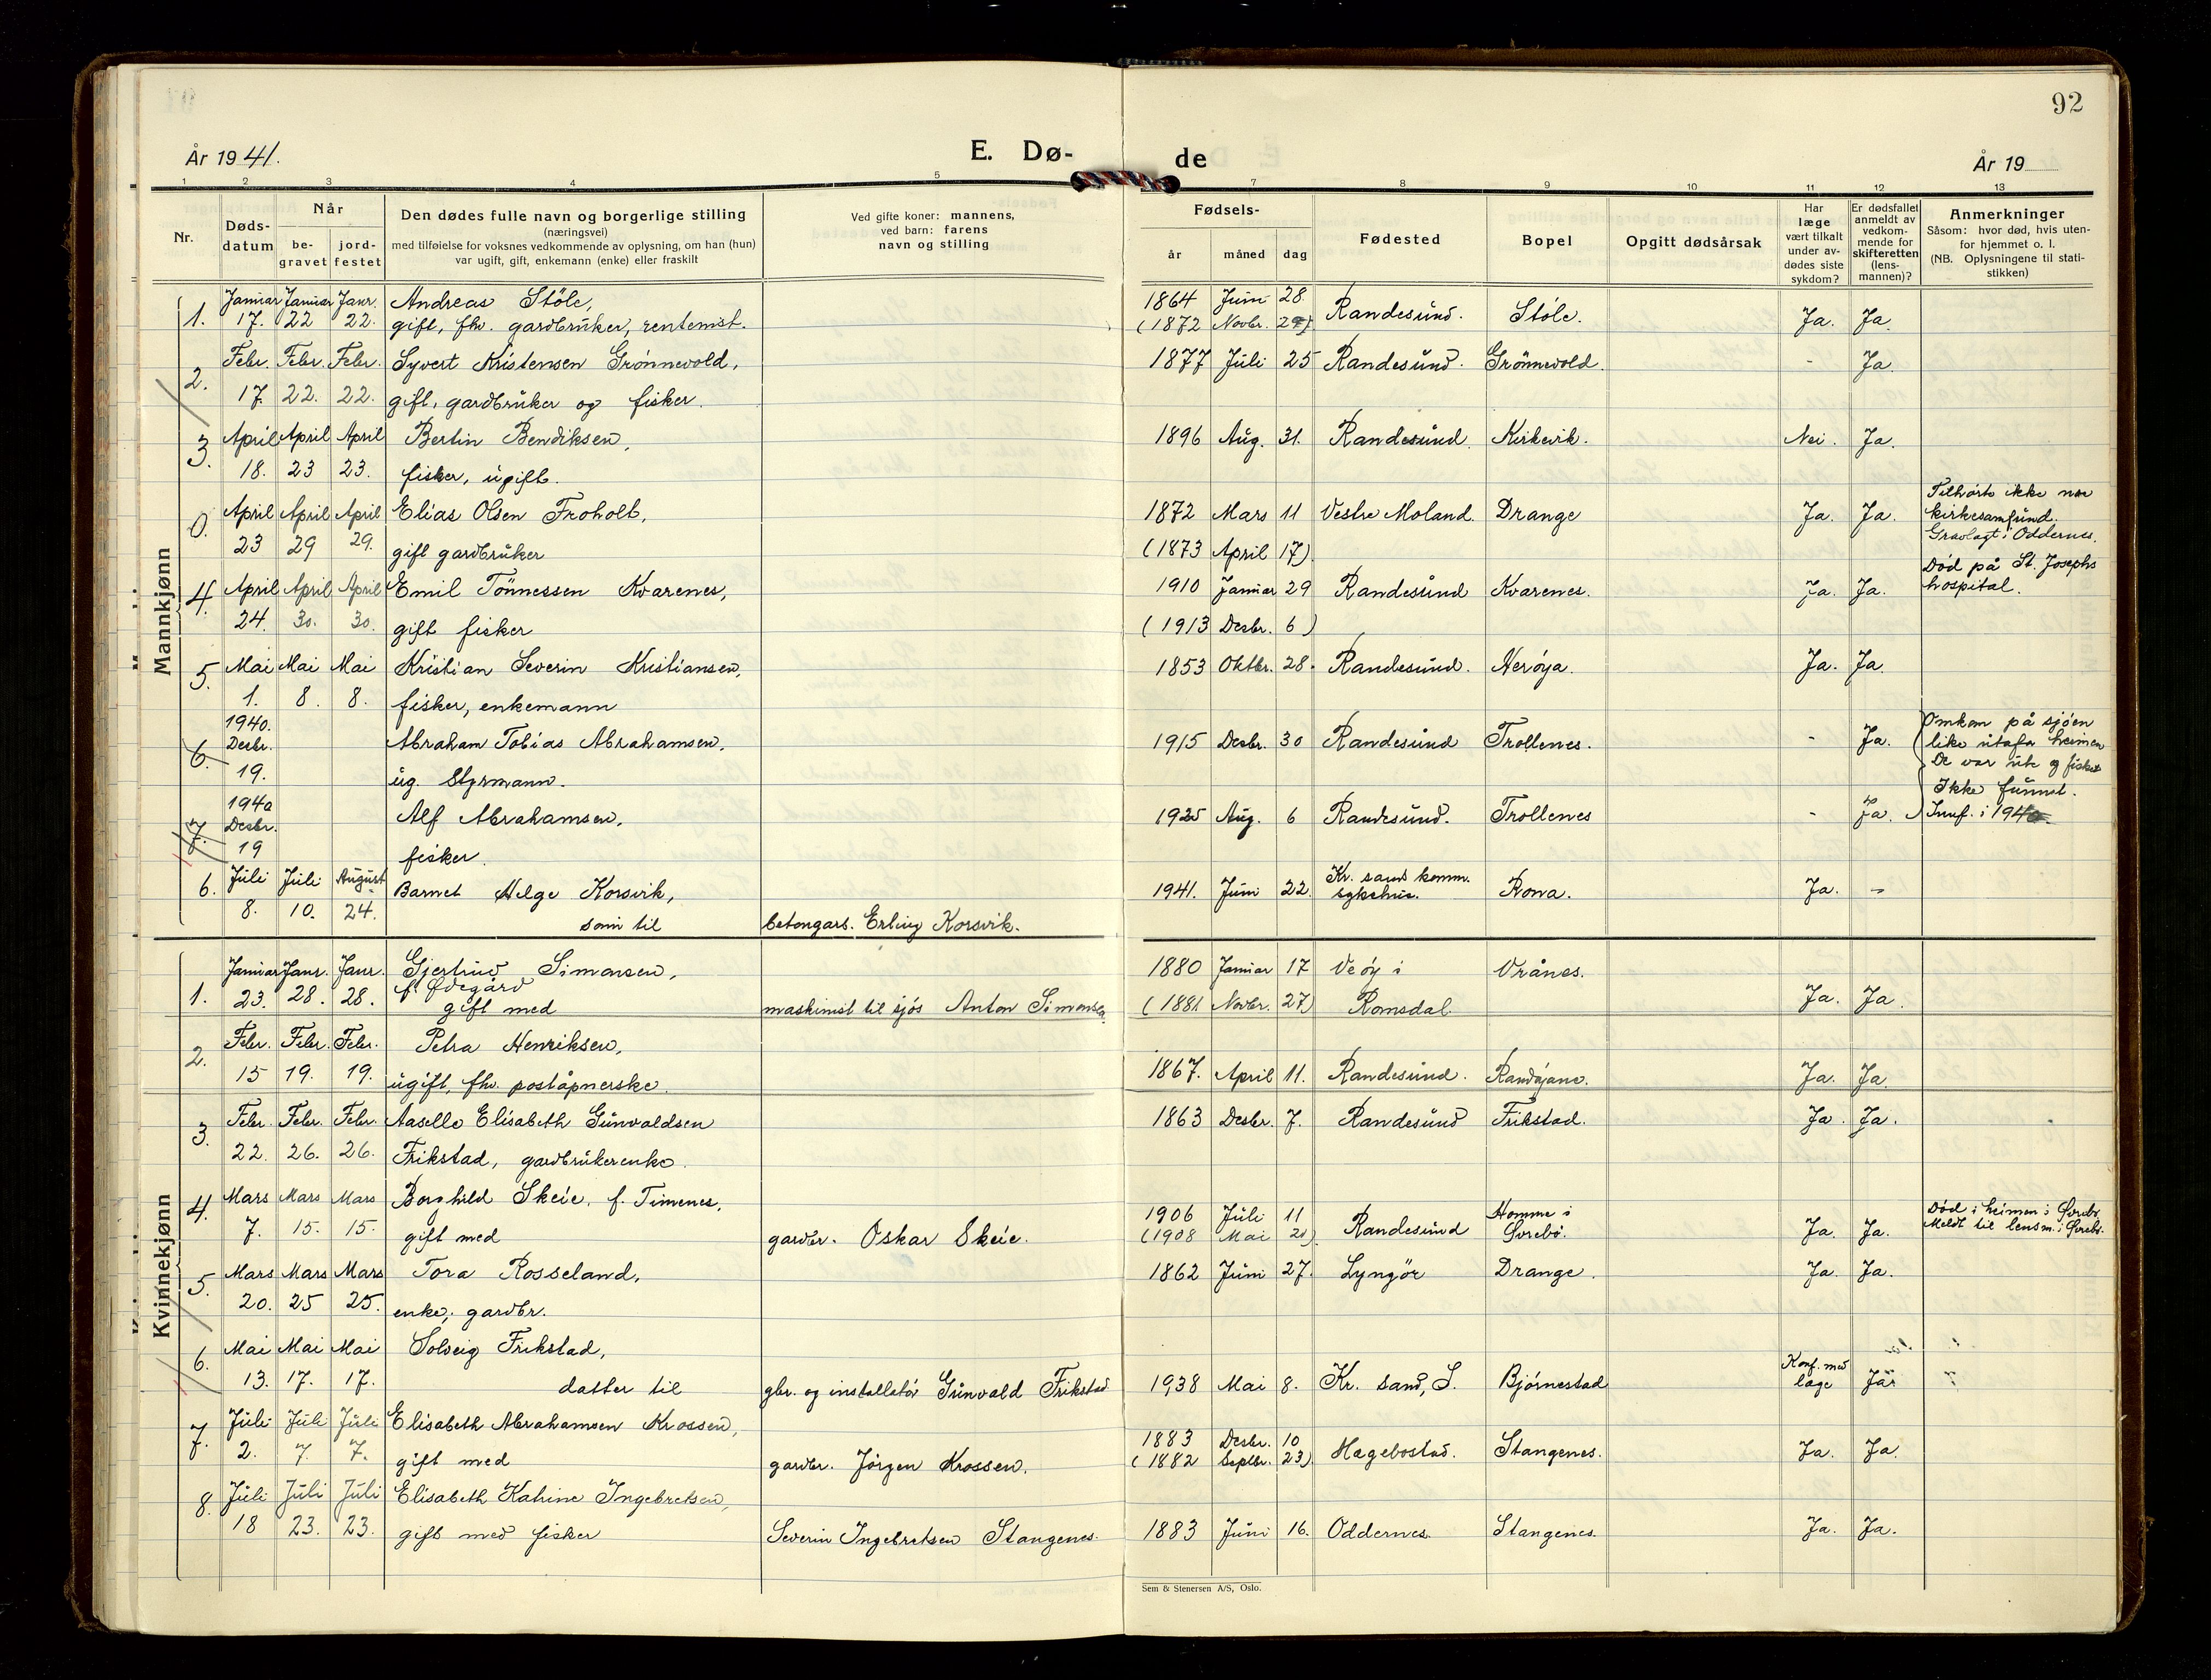 92
År 1941.
E. Dø-
de
År 19
1 2 3 4 5 7 8 9 10 11 12 13
Nr.
Døds-
datum
Når
be-
gravet
jord-
festet
Den dødes fulle navn og borgerlige stilling
(næringsvei)
med tilføielse for voksnes vedkommende av oplysning, om han (hun)
var ugift, gift, enkemann (enke) eller fraskilt
Ved gifte koner: mannens,
ved barn: farens
navn og stilling
Fødsels-
år måned dag
Fødested
Bopel
Opgitt dødsårsak
Har
læge
vært tilkalt
under av-
dødes siste
sykdom?
Er dødsfallet
anmeldt av
vedkom-
mende for
skifteretten
(lens-
mannen)?
Anmerkninger
Såsom: hvor død, hvis uten-
for hjemmet o. l.
(NB. Oplysningene til stati-
stikken)
Mannkjønn
Januar Januar Janr. Andreas Støle, 1864 Juni 28.
1. 17. 22 22. gift, fhv. gardbruker, rentenist. (1872 Novbr. Randesund. Støle. Ja. Ja.
Febr. Febr. Febr. Syvert Kristensen Grønnevold, 1877 Juli 25 Randesund. Grønnevold. - Ja.
2. 17. 22. 22. gift, gardbruker og fisker.
April April April Bertin Bendiksen, 1896 Aug. 31. Randesund. Kirkevik. Nei. Ja.
3. 18. 23 23. fisker, ugift.
April April April Elias Olsen Froholt, 1872 Mars 11 Vestre Moland. Drange Ja. Ja.
0. 23 29 29. gift gardbruker (1873 April 17)
Tilhørte ikke noe
kirkesamfund.
Gravlagt i Oddernes.
April April April Emil Tønnessen Kvarenes, 1910 Januar 29 Randesund Kvarenes. Ja. Ja.
4. 24. 30. 30. gift fisker (1913 Desbr. 6)
Død på St. Josephs
hospital.
Mai Mai Mai Kristian Severin Kristiansen, 1853 Oktbr. 28. Randesund. Herøya. Ja. Ja.
5. 1. 8. 8. fisker, enkemann
1940.
Desbr. Abraham Tobias Abrahamsen, 1915 Desbr. 30 Randesund Trollenes. - Ja.
6. 19. ug. Styrmann.
Omkom på sjøen
like utafor heimen
De var ute og fisket
Ikke funnet.
1940
Desbr. Alf Abrahamsen, 1925 Aug. 6 Randesund. Trollenes - Ja. Innf. i 1940.
7. 19 fisker.
Juli Juli August Barnet Helge Korsvik, 1941. Juni 22. Kr. sand komm.
sykehus. Rona. Ja. -
6. 8. 10. 24. sønn til betongarb. Erling Korsvik.
Kvinnekjønn
Januar Janr. Janr. Gjertrud Simonsen, 1880 Januar 17 Veøy i Vrånes.
f. Ødegård
1. 23. 28. 28. gift med maskinist til sjøs Anton Simonsen (1881 Novbr. 27) Romsdal. Ja. Ja.
Febr. Febr. Febr. Petra Henriksen,
2. 15 19. 19. ugift, fhv. poståpnerske. 1867. April 11. Randesund. Ja. Ja.
Febr. Febr. Febr. Aaselle Elisabeth Gunvaldsen 1863 Desbr. 7. Randesund Frikstad. Ja. Ja.
3. 22. 26. 26. Frikstad, gardbrukerenke.
Mars Mars Mars Borghild Skeie, f. Timenes, 1906 Juli 11 Homme i
4. 7. 15. 15. gift med gardbr. Oskar Skeie. (1908 Mai 21) Randesund Øvrebø. Ja. Ja.
Død i heimen i Øvrebø
Meldt til lensm. i Øvrebø.
Mars Mars Mars Tora Rosseland, 1862 Juni 27. Lyngør Drange. Ja. Ja.
5. 20. 25 25. enke, gardbr.
Mai Mai Mai Solveig Frikstad,
6. 13. 17. 17. datter til gbr. og installatør Gunvald Frikstad 1938 Mai 8. Kr. sand, S. Bjørnestad Konf. med
læge
Juli Juli Juli Elisabeth Abrahamsen Krossen, 1883 Desbr. 10
7. 2. 7. 7. gift med gardbr. Jørgen Krossen. (1882 Septbr. 23) Hægebostad. Stangenes. Ja. Ja.
Juli Juli Juli Elisabeth Katrine Ingebretsen,
8. 18 23. 23. gift med fisker Severin Ingebretsen Stangenes. 1883 Juni 16. Oddernes. Stangenes. Ja. Ja.
Sem & Stenersen A/S, Oslo.